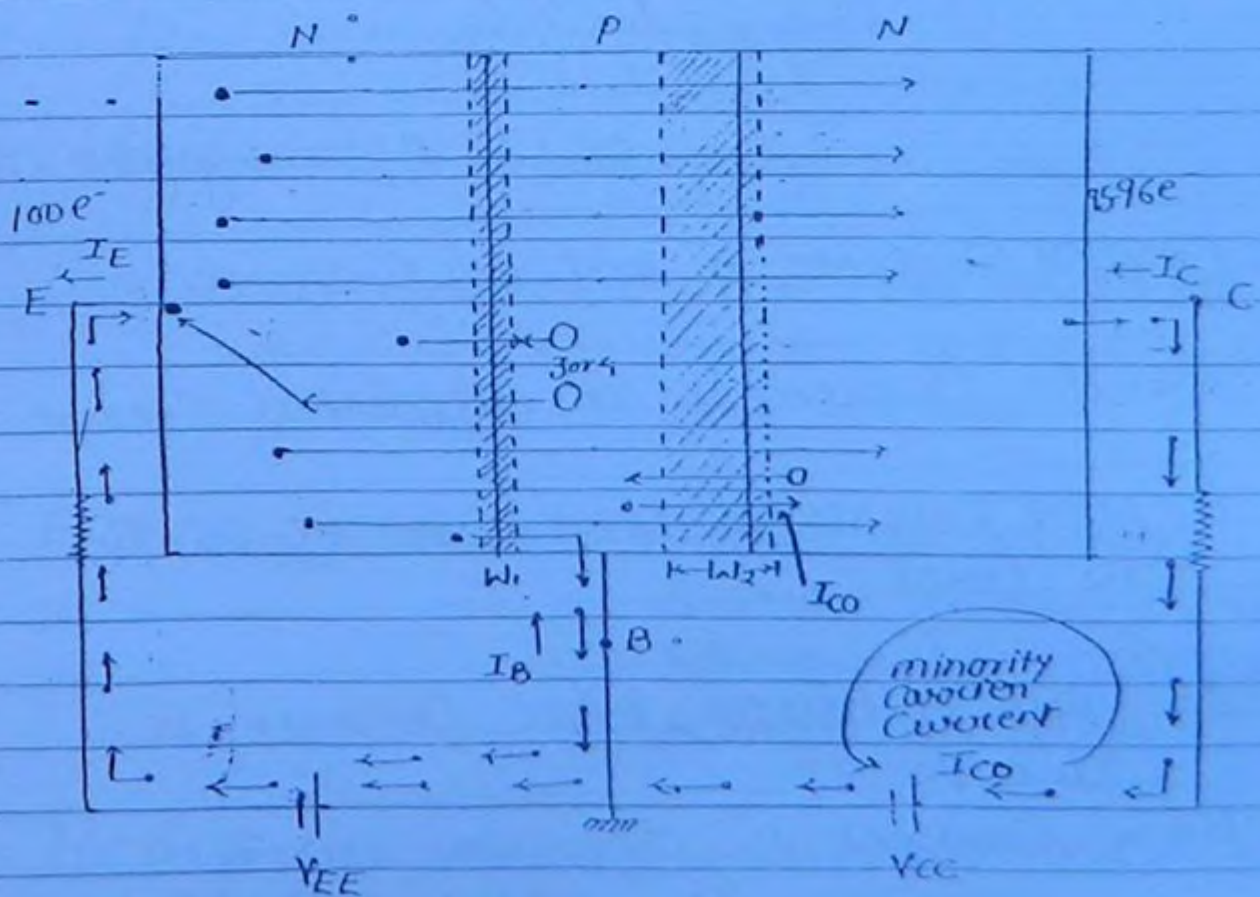 N P N
100e⁻
9596e
I_E
I_C
E
C
3or4
W₁
W₂
I_CO
B
I_B
minority
carrier
current
I_CO
V_EE
V_CC